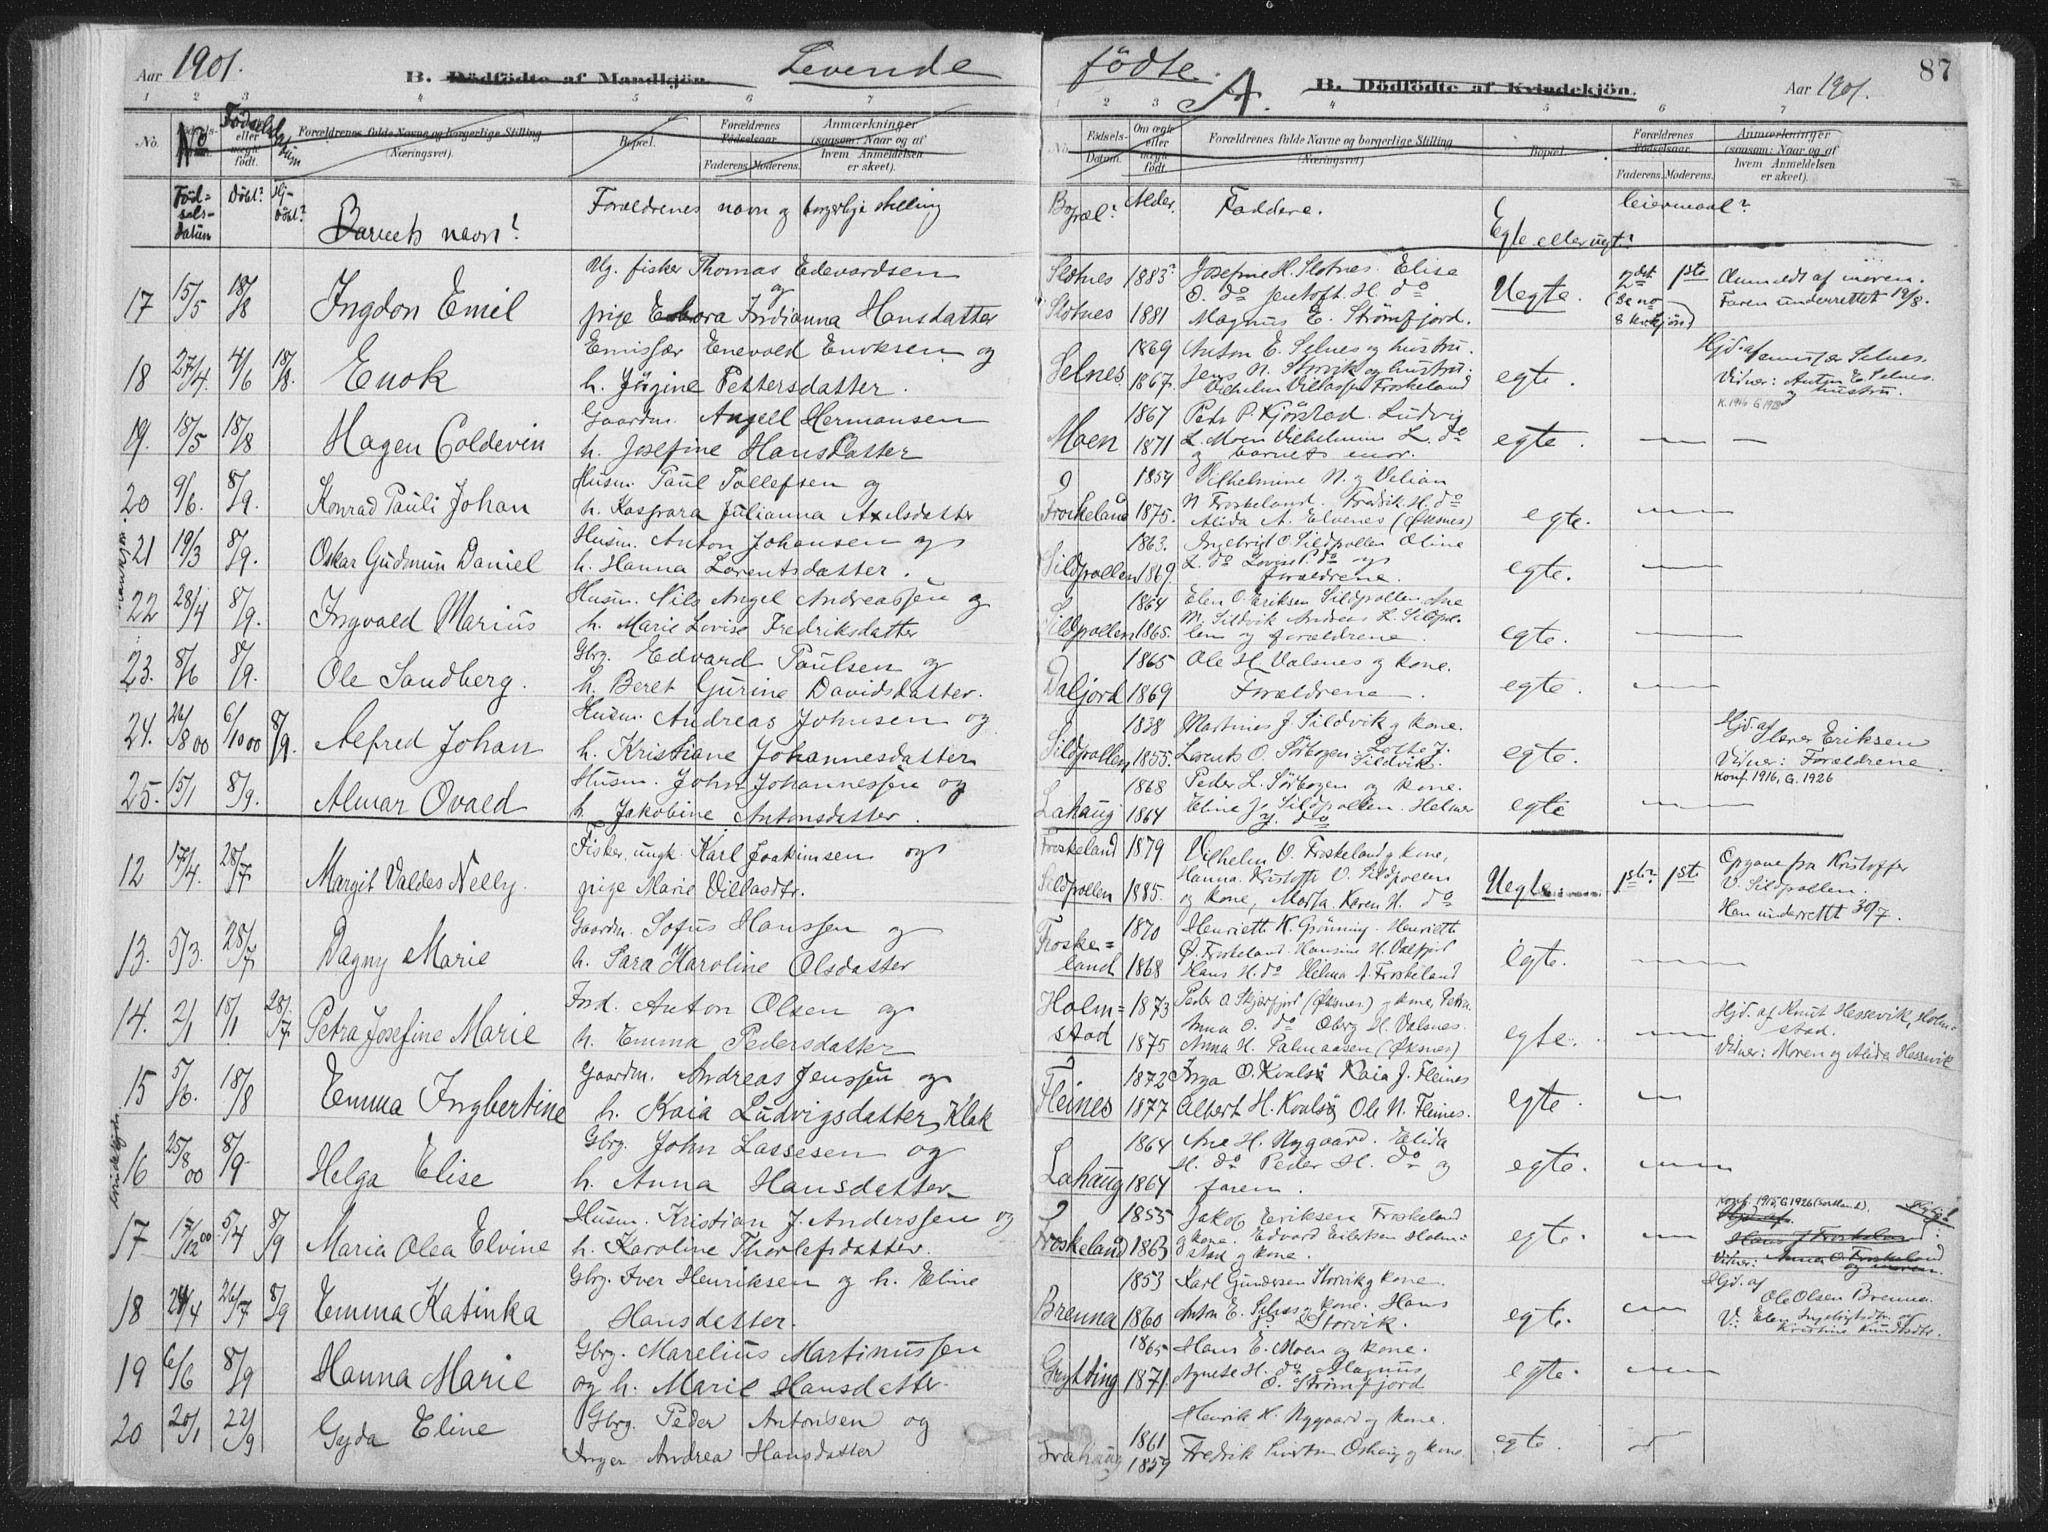 Aar 1901.
B. Dödfödte af Mandkjön.
Levende
fødte.
A.
B. Dödfödte af Kvindekjön.
Aar 1901.
87
1 2 3 4 5 6 7
1 2 3 4 5 6 7
No.
Forældrenes fulde Navne og borgerlige Stilling
(Næringsvei).
Bopæl.
Forældrenes Fødselsaar
Faderens. Moderens.
Anmærkninger
(saasom: Naar og af hvem Anmeldelsen er skeet).
Fødsels-Datum.
Om ægte eller uægte født.
Forældrenes fulde Navne og borgerlige Stilling
(Næringsvei).
Bopæl.
Forældrenes Fødselsaar
Faderens. Moderens.
Anmærkninger
(saasom: Naar og af hvem Anmeldelsen er skeet).
Fødsels-datum
Døbt?
Hj-døbt?
Barnets navn?
Forældrenes navn og borgerlige stilling
Bopæl?
Alder.
Faddere.
Egte eller uegt?
leiermaal?
17 15/5 18/8 Ingdon Emil
Ug. fisker Thomas Edevardsen
og
pige Indianna Hansdatter
Slotnes 1883 Josefine H. Slotnes. Elise
Slotnes 1881 Magnus E. Strømfjord.
Uegte. 2det 1ste
Anmeldt af moren.
Faren underrettet 19/8.
18 27/4. 4/6 18/8 Enok
Emissær Enevold Enoksen og
h. Jørgine Pettersdatter.
Selnes 1869 1867. Anton E. Selnes og hustru.
Jens N. Storvik og hustru.
egte.
Hjd. af emissær Selnes.
Vidner: Anton E. Selnes og hustru.
K. 1916
19. 18/5 18/8 Hagen Coldevin
Gaardm. Angell Hermansen
h. Josefine Hansdatter
Moen 1867 1871 Peder P. Kjørstad. Ludvig
L. Moen Vilhelmine L. do
og barnets mor.
egte.
20 9/6. 8/9. Konrad Pauli Johan
Husm. Paul Tollefsen og
h. Kaspara Julianna Axelsdatter
Froskeland 1854 1875. Vilhelmine N. og Velian
N. Froskeland. Fredrik H. do
Alida A. Elvenes (Øksnes)
egte.
21 19/3 8/9. Oskar Gudmun Daniel
Husm. Anton Johansen og
h. Hanna Lorentsdatter.
Sildpollen 1863. 1869. Ingebrigt O. Sildpollen Oline
L. do Lovise P. do og
forældrene.
egte.
22 28/4 8/9. Ingvald Marius
Husm. Nils Angel Andreassen og
h. Marie Lovise Fredriksdatter
Sildpollen 1864 1865. Elen O. Eriksen Sildpollen Ane
M. Sildvik Andreas L. Sildpollen og forældrene.
egte.
23. 8/6 8/9. Ole Sandberg.
Gbrg. Edvard Paulsen og
h. Beret Gurine Davidsdatter.
Daljord 1865 1869 Ole H. Valsnes og kone.
Forældrene.
egte.
24. 26/8 00 6/10 00 8/9. Alfred Johan
Husm. Andreas Johnsen og
h. Kristiane Johannesdatter
Sildpollen 1838 1855. Martines J. Sildvik og kone.
Lorents O. Sørbogen. Lotte J. Sildvik.
egte.
Hjd. af lærer Eriksen
Vidner: Forældrene.
Konf. 1916, G. 1926
25. 15/1 8/9. Almar Ovald
Husm. John Johannessen og
h. Jakobine Antonsdatter.
Lahaug 1868 1864 Peder L. Sørbogen og kone.
Eline J. Sildpollen. Helmer
J. do
egte
12 17/4. 28/7 Margit Valdes Nelly.
Fisker, ungk. Karl Joakimsen og
pige Marie Villasdtr.
Froskeland 1879
Sildpollen 1885.
Vilhelm O. Froskeland og kone,
Hanna. Kristoffer V. Sildpollen
og kone, Marta. Karen H. do
Uegte 1ste 1ste
Opgave fra Kristoffer
V. Sildpollen.
Han underrettet 30/7.
13. 5/3. 28/7 Dagny Marie
Gaardm. Sofus Hanssen og
h. Sara Karoline Olsdatter
Froskeland 1870 1868 Henriette K. Grønning. Henriette
Ø. Froskeland. Hansine H. Valfjord
Hans H. do Hilma A. Froskeland
egte.
14. 2/1 18/1 28/7 Petra Josefine Marie
Ind. Anton Olsen og
h. Emma Pedersdatter
Holmstad 1873 1875 Peder A. Skjærfjord (Øksnes) og kone, Petra
Anna O. do Oberg H. Valsnes.
Anna H. Palmaasen (Øksnes)
egte.
Hjd. af Knut Hessevik, Holmstad.
Vidner: Moren og Alida Hessevik
15 5/6. 18/8 Emma Ingbertine
Gaardm. Andreas Jenssen og
h. Kaia Ludvigsdatter, Klak
Fleines 1872 1877 Inga O. Kvalsø Kaia J. Fleines
Albert H. Kvalsø Ole N. Fleines.
egte.
16 25/8 00 8/9. Helga Elise
Gbrg. John Lassesen og
h. Anna Hansdatter
Lahaug 1864 1864 Ane H. Nygaard. Elida
H. do Peder H. do og
faren.
egte.
17 17/12 00 5/4 8/9 Maria Olea Elvine
Husm. Kristian J. Anderssen og
h. Karoline Thorlefsdatter.
Froskeland 1855 1863 Jakob Eriksen Froskeland
og kone. Edvard Eilertsen Holmstad og kone.
egte.
Hjd. af
Hans J. Froskeland.
Vidner: Anna O. Froskeland
og moren.
18 24/4 26/7 8/9 Emma Katinka
Gbrg. Iver Henriksen og h. Eline
Hansdatter.
Brenna 1853 1860 Karl Gundersen Storvik og kone.
Anton E. Selnes og kone. Hans
Storvik.
egte.
Hjd. af
Ole Olsen Brenna.
V: Elen Ingebrigtsdtr. og
Kristine Knudsdtr.
19 6/6 8/9 Hanna Marie
Gbrg. Marelius Martinussen
og h. Marie Hansdatter.
Grytting 1865 1871. Hans E. Moen og kone.
Agnete H. do Magnus
E. Strømfjord
egte.
20 20/1 22/9 Gyda Eline
Gbrg. Peder Antonsen og
Inger Andrea Hansdatter
1861 1859 Henrik H. Nygaard og kone.
Fredrik Oshaug og kone.
egte.